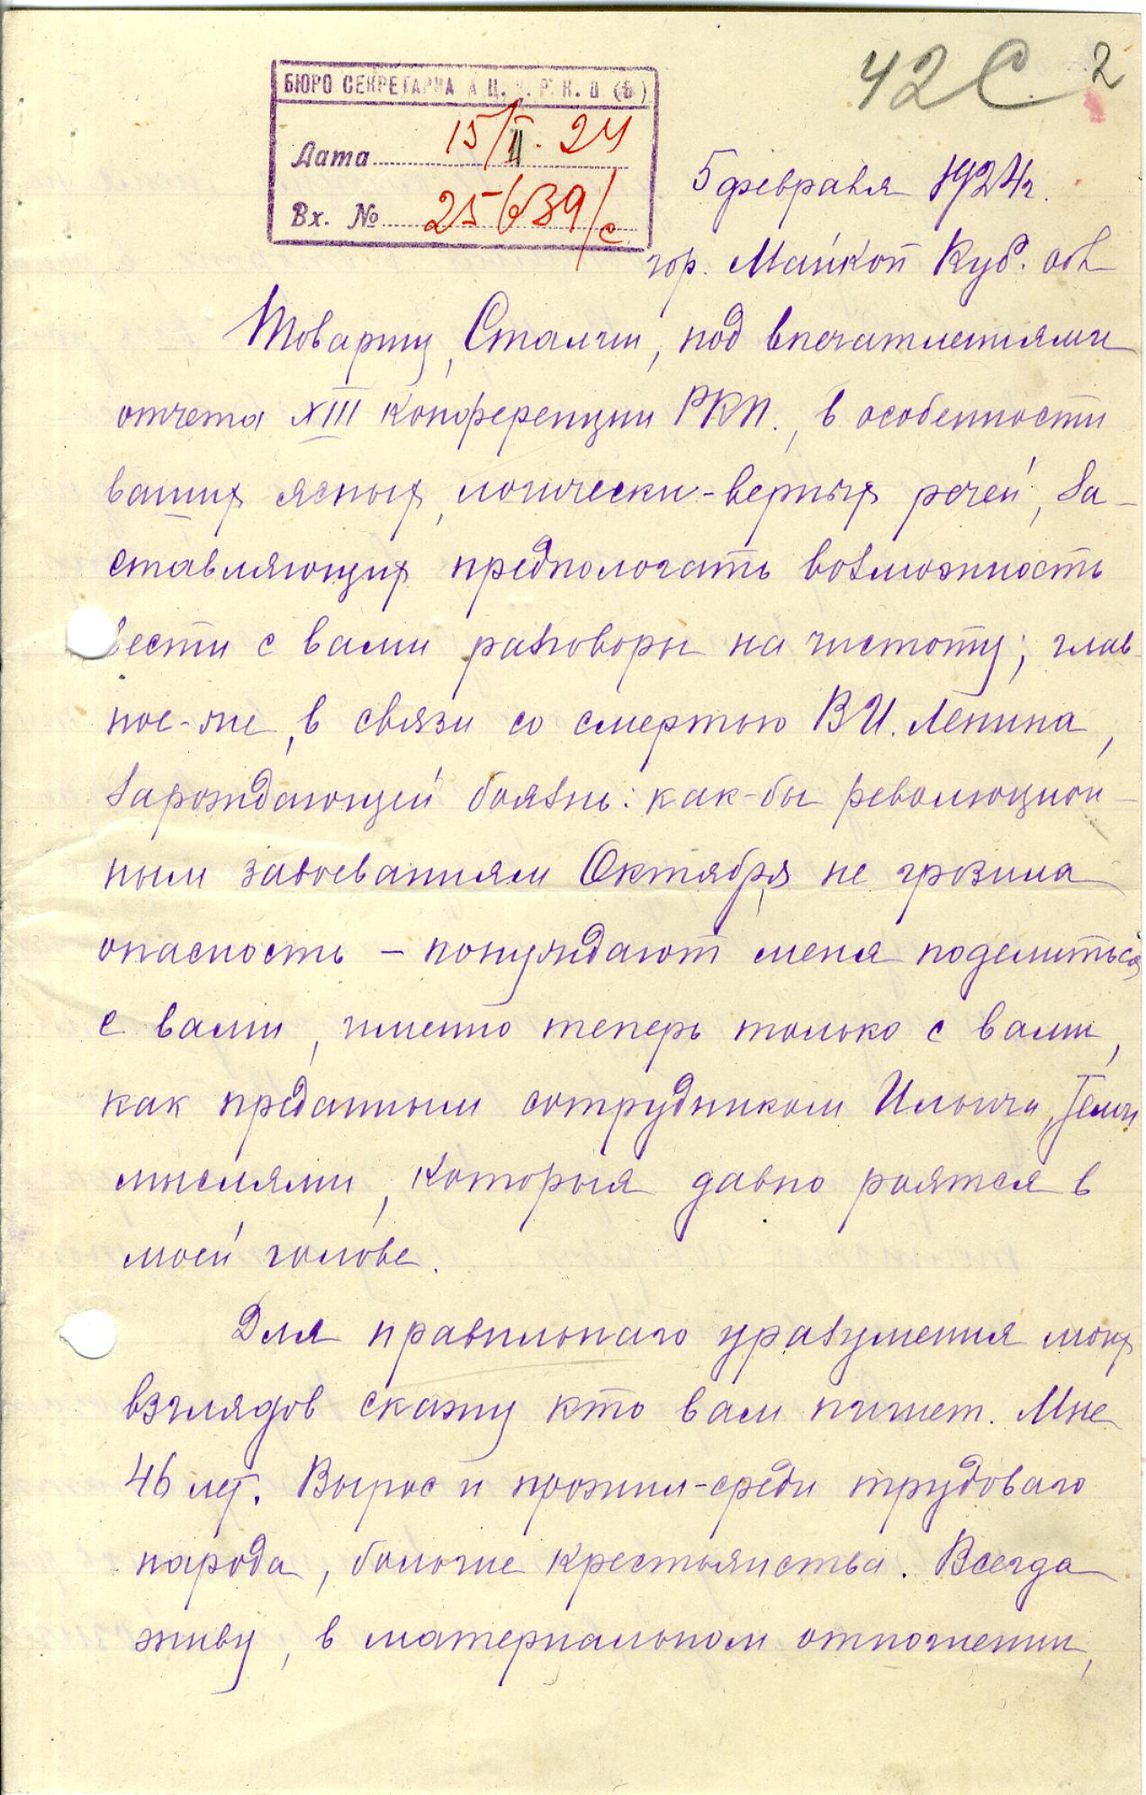 42С 2
БЮРО СЕКРЕТАРИАТА Ц.К.Р.К.П.(Б)
Дата 15/II. 24
Вх. № 25639/с
5 февраля 1924 г.
гор. Майкоп Куб. обл
Товарищ Сталин, под впечатлениями
отчета XIII конференции РКП., в особенности
ваших ясных, логически-верных речей, за-
ставляющих предпологать возможность
вести с вами разговоры на чистоту; глав-
ное-же, в связи со смертью В.И. Ленина,
зарождающей боязнь: как-бы революцион-
ным завоеваниям Октября не грозила
опасность – понуждают меня поделиться
с вами, именно теперь только с вами,
как преданным сотрудником Ильича, теми
мыслями, которыя давно роятся в
моей голове.
Для правильнаго уразумения моих
взглядов скажу кто вам пишет. Мне
46 лет. Вырос и прожил-среди трудоваго
народа, бологие крестьянства. Всегда
живу, в материальном отношении,